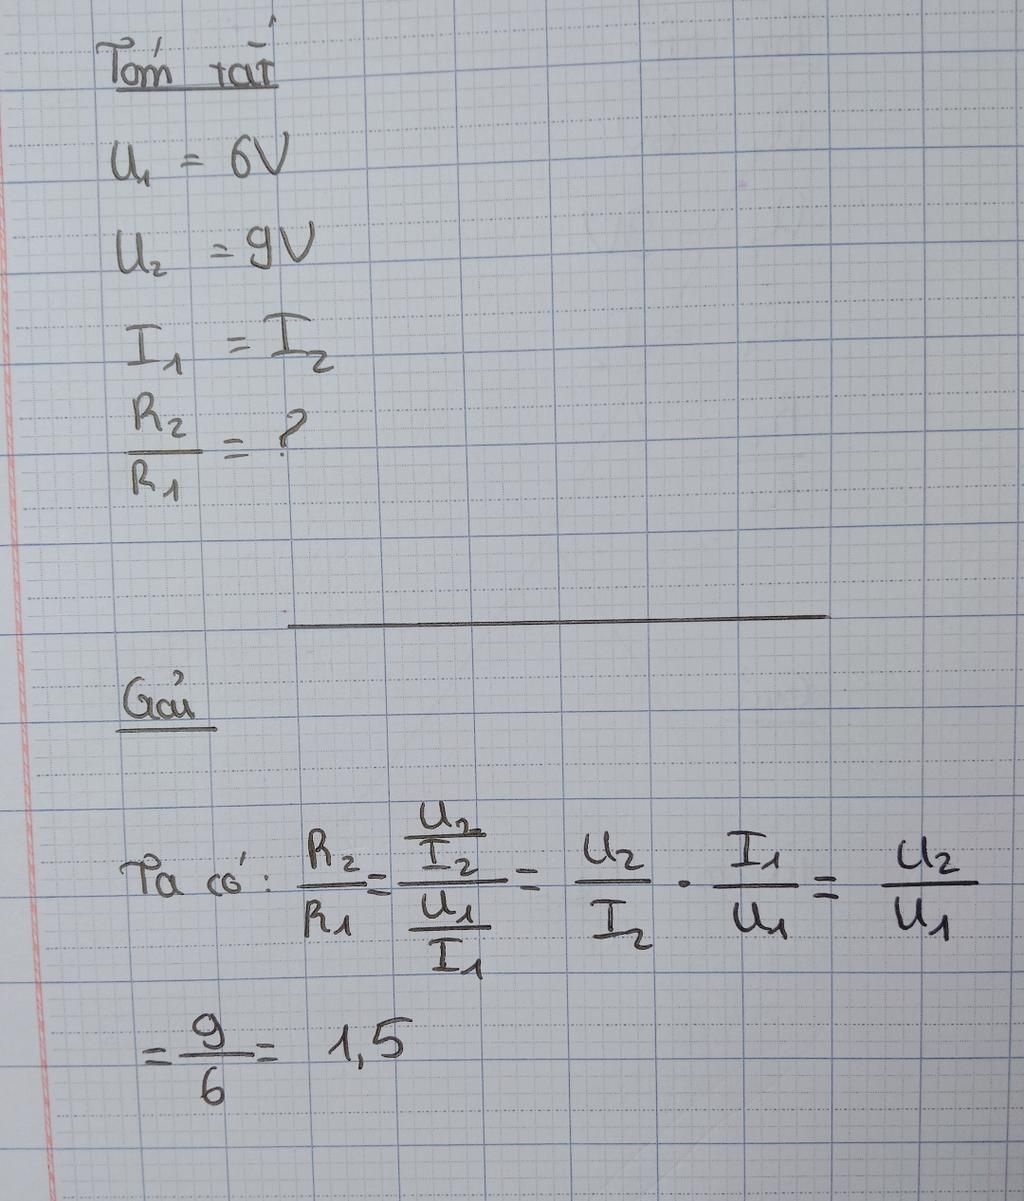 Tóm tắt
U₁ = 6V
U₂ = 9V
I₁ = I₂
R₂/R₁ = ?
Giải
Ta có: R₂/R₁ = (U₂/I₂)/(U₁/I₁) = U₂/I₂ . I₁/U₁ = U₂/U₁
= 9/6 = 1,5